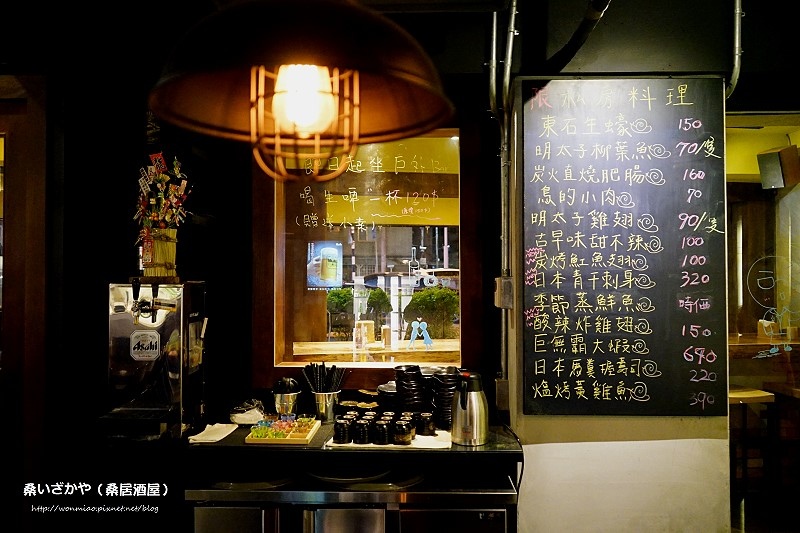 即日起坐戶外
喝生啤一杯120$
(贈送小菜)
料理
東石生蠔 150
明太子柳葉魚 70/隻
炭火直燒肥腸 160
鳥的小肉 70
明太子雞翅 90/隻
古早味甜不辣 100
炭烤魟魚翅 100
日本青干刺身 320
季節蒸鮮魚 時價
酸辣炸雞翅 150
巨無霸大蝦 640
日本馬糞握壽司 220
爐烤黃雞魚 390
Asahi
桑いざかや（桑居酒屋）
http://wonmiao.pixnet.net/blog